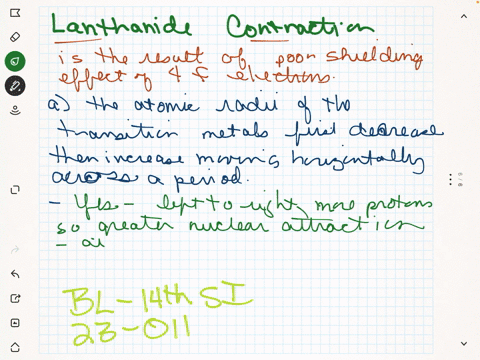 Lanthanide Contraction
is the result of poor shielding
effect of 4f electrons.
a) the atomic radii of the
transition metals first decrease
then increase moving horizontally
across a period.
- Yes - left to right, more protons
so greater nuclear attraction
-
BL-14th SI
23-011